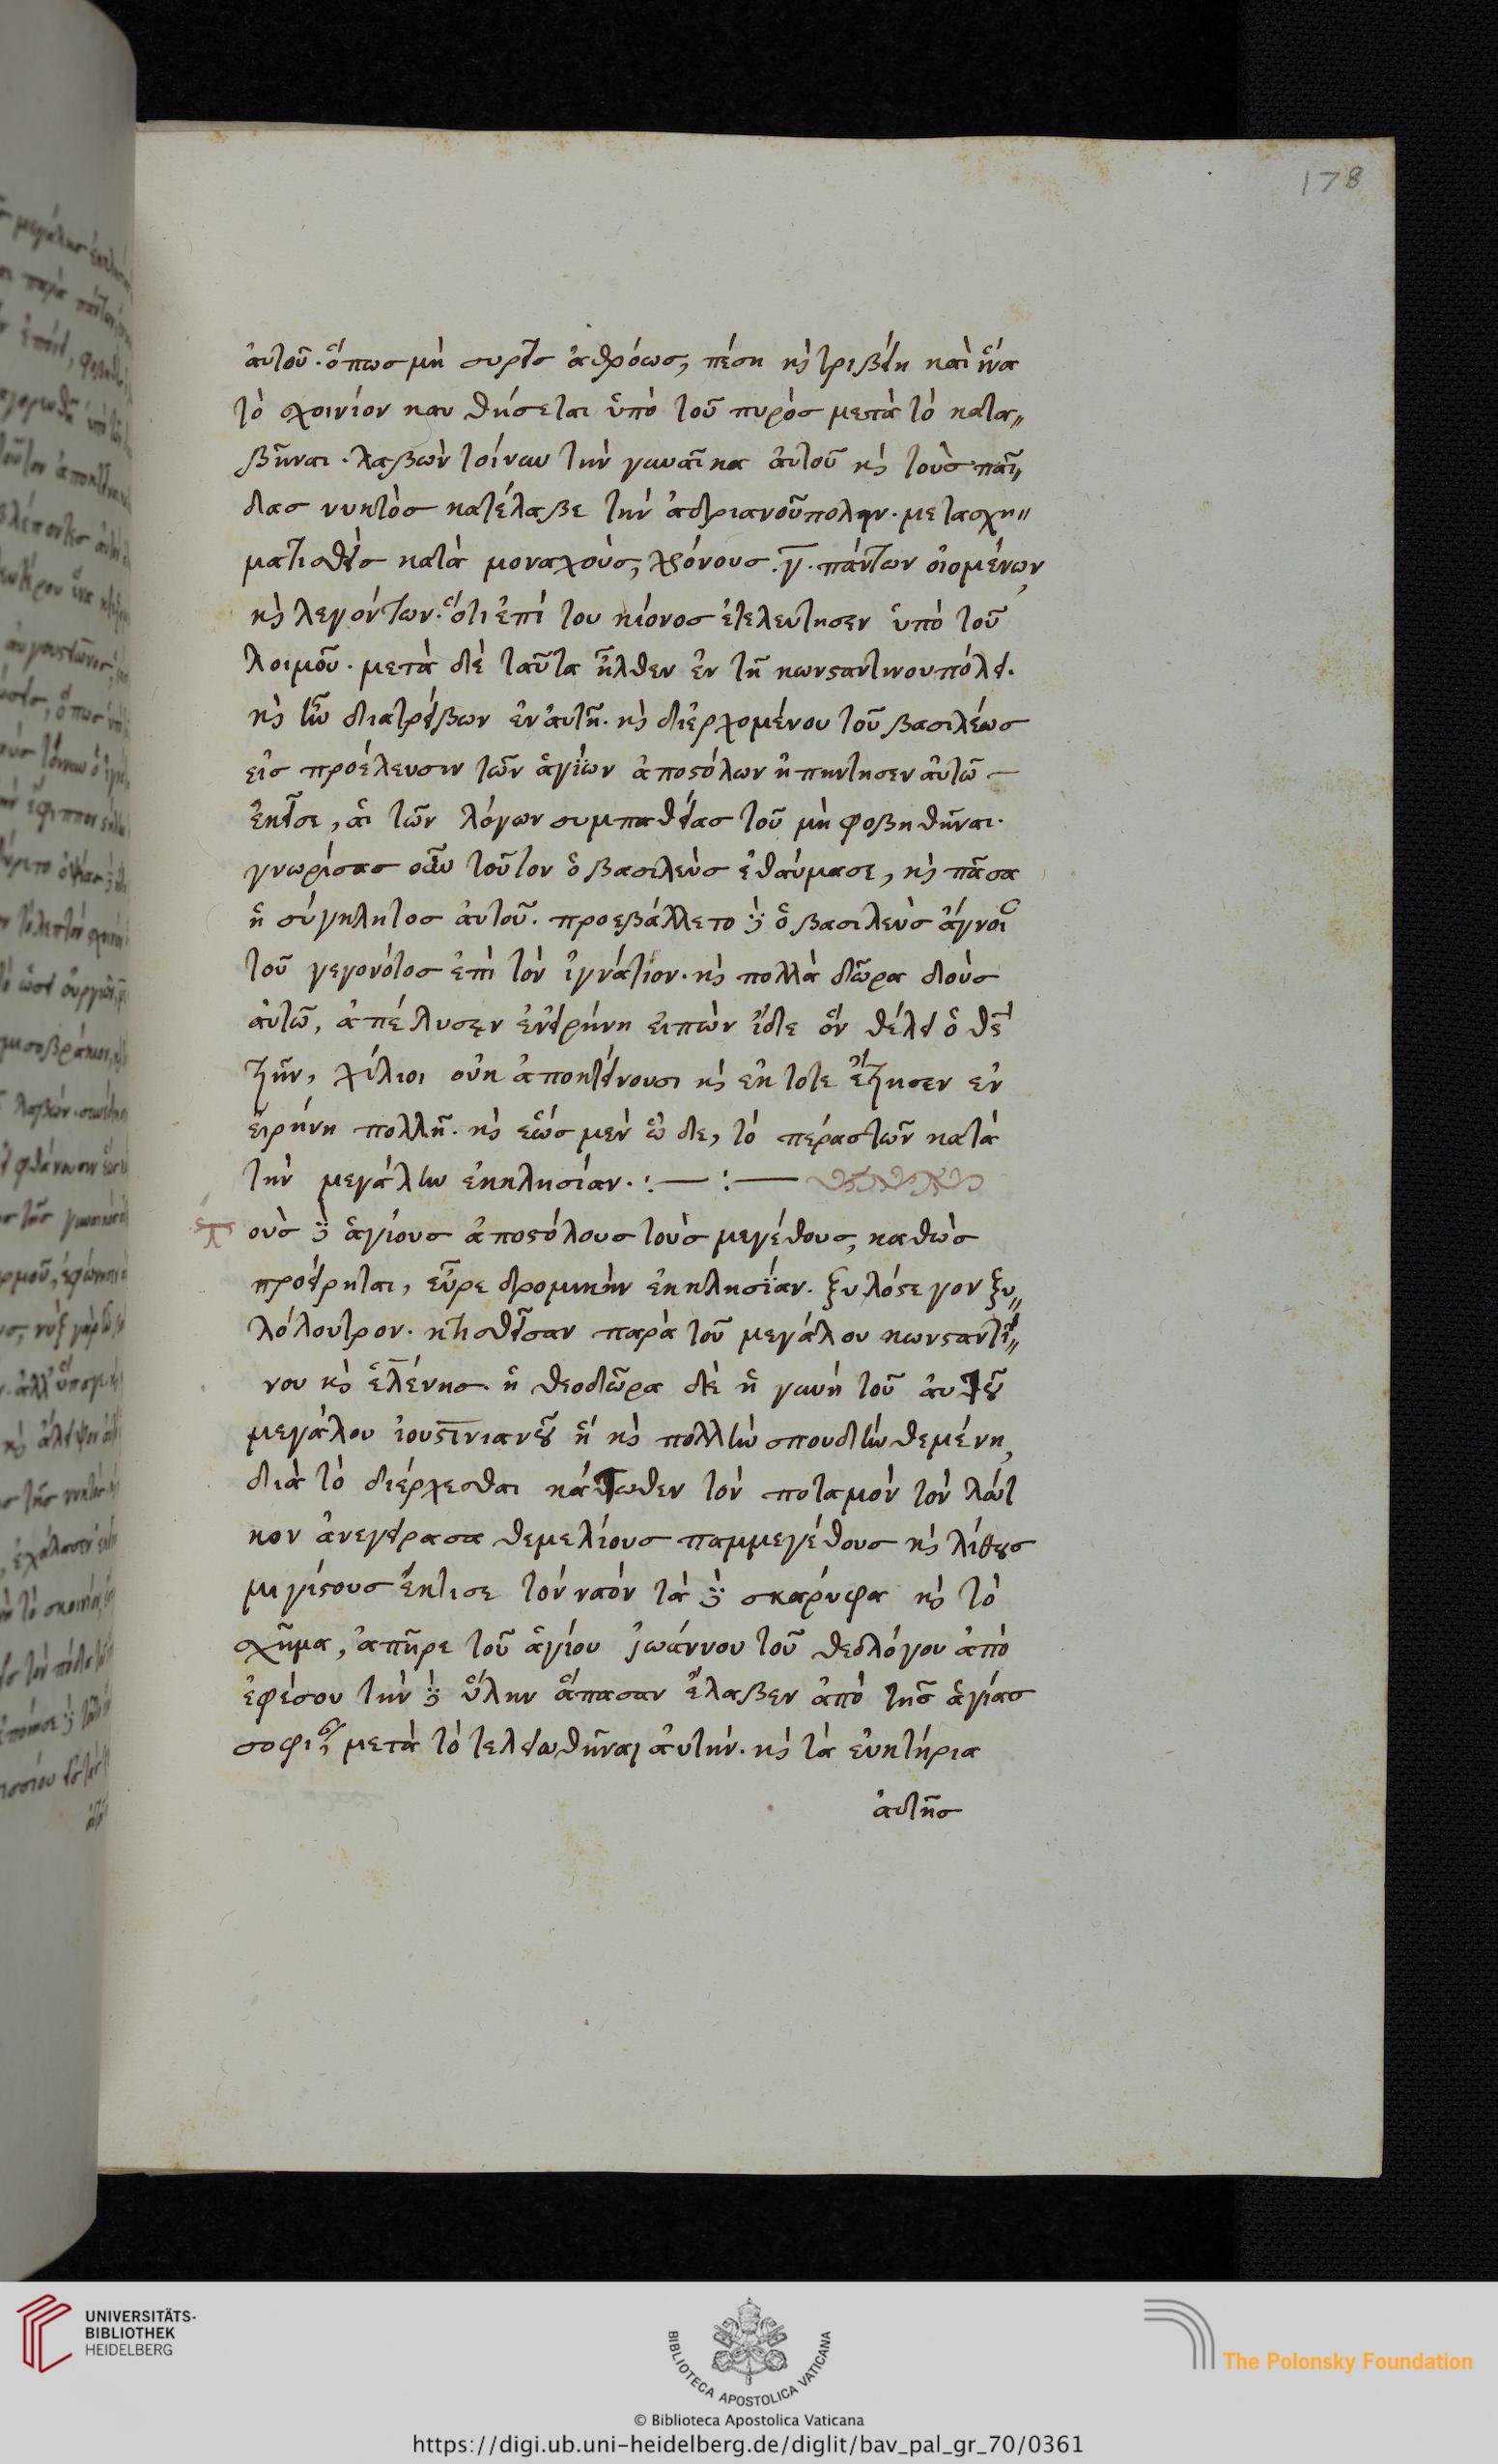 178
αὐτοῦ. ὅπως μὴ συρεὶς ἀθρόως, πέση κὶ τριβείη καὶ ἵνα
τὸ σχοινίον καυθήσεται ὑπὸ τοῦ πυρὸς μετὰ τὸ κατα〃
βῆναι. λαβὼν τοίνυν τὴν γυναῖκα αὐτοῦ κὶ τοὺς παῖ〃
δας νυκτὸς κατέλαβε τὴν ἀδριανοῦπολην. μετασχη〃
ματισθεὶς κατὰ μοναχούς, χρόνους. γ̅. πάντων οἰομένων,
κὶ λεγόντων. ὅτι ἐπί του κίονος ἐτελεύτησεν ὑπὸ τοῦ
λοιμοῦ. μετὰ δὲ ταῦτα ἦλθεν ἐν τῆ κωνϛαντινουπόλει.
κὶ ἦν διατρείβων ἐν αὐτῆ. κὶ διερχομένου τοῦ βασιλέως
εἰς προέλευσιν τῶν ἁγίων ἀποϛόλων ἠπήντησεν αὐτῶ —
ἐκεῖσε, αἱ τῶν λόγων συμπαθείας τοῦ μὴ φοβηθῆναι.
γνωρίσας οὖν τοῦτον ὁ βασιλεὺς ἐθαύμασε, κὶ πᾶσα
ἡ σύγκλητος αὐτοῦ. προεβάλλετο δὲ ὁ βασιλεὺς ἄγνοι
τοῦ γεγονότος ἐπὶ τὸν ἰγνάτιον. κὶ πολλὰ δῶρα δοὺς
αὐτῶ, ἀπέλυσεν ἐν εἰρήνη εἰπὼν ἴδε ὃν θέλει ὁ θς
ζῆν, χίλιοι οὐκ ἀποκτείνουσι κὶ ἐκ τοτε ἔζησεν ἐν
εἰρήνη πολλῆ. κὶ ἕως μὲν ὧδε, τὸ πέρας τῶν κατὰ
τὴν μεγάλην ἐκκλησίαν. :— :—
Τοὺς δὲ ἁγίους ἀποϛόλους τοὺς μεγέθους, καθὼς
προείρηται, εὗρε δρομικὴν ἐκκλησίαν. ξυλόϛεγον ξυ〃
λόλουτρον. κτισθεῖσαν παρὰ τοῦ μεγάλου κωνϛαντί〃
νου κὶ ἑλένης. ἡ θεοδῶρα δὲ ἡ γυνὴ τοῦ αυτοῦ
μεγάλου ἰουϛινιανοῦ ἣ κὶ πολλὴν σπουδὴν θεμένη,
διὰ τὸ διέρχεσθαι κάτωθεν τὸν ποταμὸν τὸν λύ
κον ἀνεγείρασα θεμελίους παμμεγέθους κὶ λίθους
μεγίϛους ἔκτισε τὸν ναόν τὰ δὲ σκαρύφα κὶ τὸ
σχῆμα, ἀπῆρε τοῦ ἁγίου ἰωάννου τοῦ θεολόγου ἀπὸ
ἐφέσου τὴν δὲ ὕλην ἅπασαν ἔλαβεν ἀπὸ τῆς ἁγίας
σοφίας, μετὰ τὸ τελειωθῆναι αὐτήν. κὶ τὰ εὐκτήρια
αὐτῆς
UNIVERSITÄTS-
BIBLIOTHEK
HEIDELBERG
BIBLIOTECA APOSTOLICA VATICANA
The Polonsky Foundation
© Biblioteca Apostolica Vaticana
https://digi.ub.uni-heidelberg.de/diglit/bav_pal_gr_70/0361